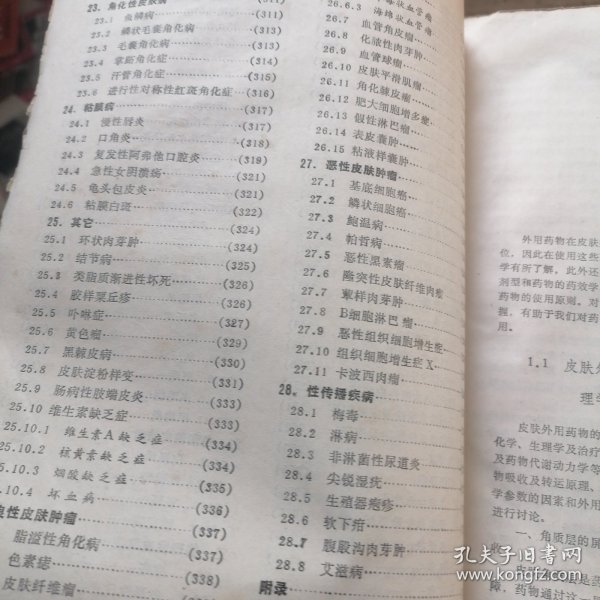 23. 角化性皮肤病 (311)
23.1 鱼鳞病 (311)
23.2 鳞状毛囊角化病 (313)
23.3 毛囊角化病 (313)
23.4 掌跖角化症 (314)
23.5 汗管角化症 (315)
23.6 进行性对称性红斑角化症 (316)
24. 粘膜病 (317)
24.1 慢性唇炎 (317)
24.2 口角炎 (318)
24.3 复发性阿弗他口腔炎 (319)
24.4 急性女阴溃疡 (321)
24.5 龟头包皮炎 (321)
24.6 粘膜白斑 (322)
25. 其它 (324)
25.1 环状肉芽肿 (324)
25.2 结节病 (325)
25.3 类脂质渐进性坏死 (326)
25.4 胶样粟丘疹 (326)
25.5 卟啉症 (327)
25.6 黄色瘤 (329)
25.7 黑棘皮病 (330)
25.8 皮肤淀粉样变 (331)
25.9 肠病性肢端皮炎 (333)
25.10 维生素缺乏症 (333)
25.10.1 维生素A缺乏症 (334)
25.10.2 核黄素缺乏症 (334)
25.10.3 烟酸缺乏症 (335)
25.10.4 坏血病 (336)
良性皮肤肿瘤 (337)
脂溢性角化病 (337)
色素痣 (338)
皮肤纤维瘤
26.6.3 海绵状血管瘤
26.7 血管角皮瘤
26.8 化脓性肉芽肿
26.9 血管球瘤
26.10 皮肤平滑肌瘤
26.11 角化棘皮瘤
26.12 肥大细胞增多症
26.13 假性淋巴瘤
26.14 表皮囊肿
26.15 粘液样囊肿
27. 恶性皮肤肿瘤
27.1 基底细胞癌
27.2 鳞状细胞癌
27.3 鲍温病
27.4 帕哲病
27.5 恶性黑素瘤
27.6 隆突性皮肤纤维肉瘤
27.7 蕈样肉芽肿
27.8 B细胞淋巴瘤
27.9 恶性组织细胞增生症
27.10 组织细胞增生症X
27.11 卡波西肉瘤
28. 性传播疾病
28.1 梅毒
28.2 淋病
28.3 非淋菌性尿道炎
28.4 尖锐湿疣
28.5 生殖器疱疹
28.6 软下疳
28.7 腹股沟肉芽肿
28.8 艾滋病
附录
外用药物在皮肤
位，因此在使用这些
学有所了解，此外还
剂型和药物的药效学
药物的使用原则。对
握，有助于我们对药
用。
1.1 皮肤外
理学
皮肤外用药物的
化学、生理学及治疗
及药物代谢动力学等
物吸收及转运原理、
学参数的因素和外用
进行讨论。
一、角质层的屏
障，药物通过这一
孔夫子旧书网
www.kongfz.com